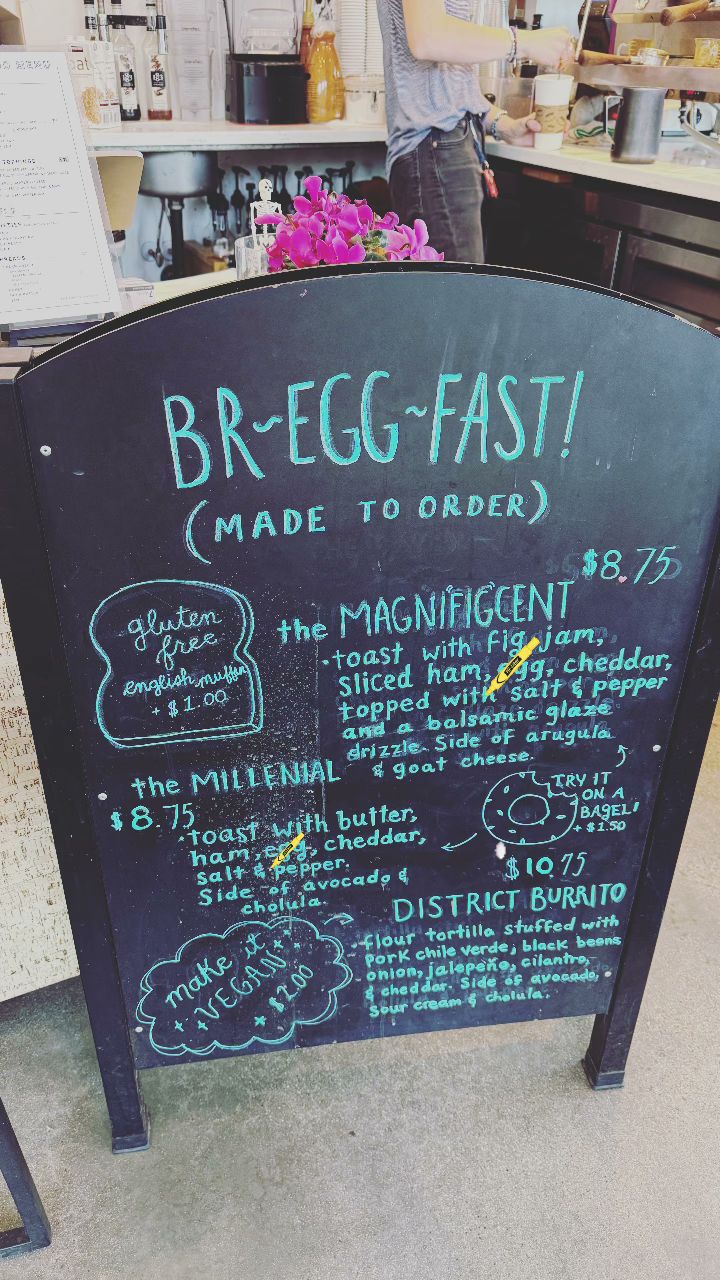 BR~EGG~FAST!
(MADE TO ORDER)
$8.75
gluten
free
english muffin
+ $1.00
the MAGNIFIGCENT
·toast with fig jam,
sliced ham, egg, cheddar,
topped with salt & pepper
and a balsamic glaze
drizzle. Side of arugula
& goat cheese.
the MILLENIAL
$8.75
·toast with butter,
ham, egg, cheddar,
salt & pepper.
Side of avocado &
cholula.
TRY IT
ON A
BAGEL!
+ $1.50
$10.75
DISTRICT BURRITO
·flour tortilla stuffed with
pork chile verde, black beans
onion, jalapeño, cilantro,
& cheddar. Side of avocado,
sour cream & cholula.
make it
VEGAN
$2.00